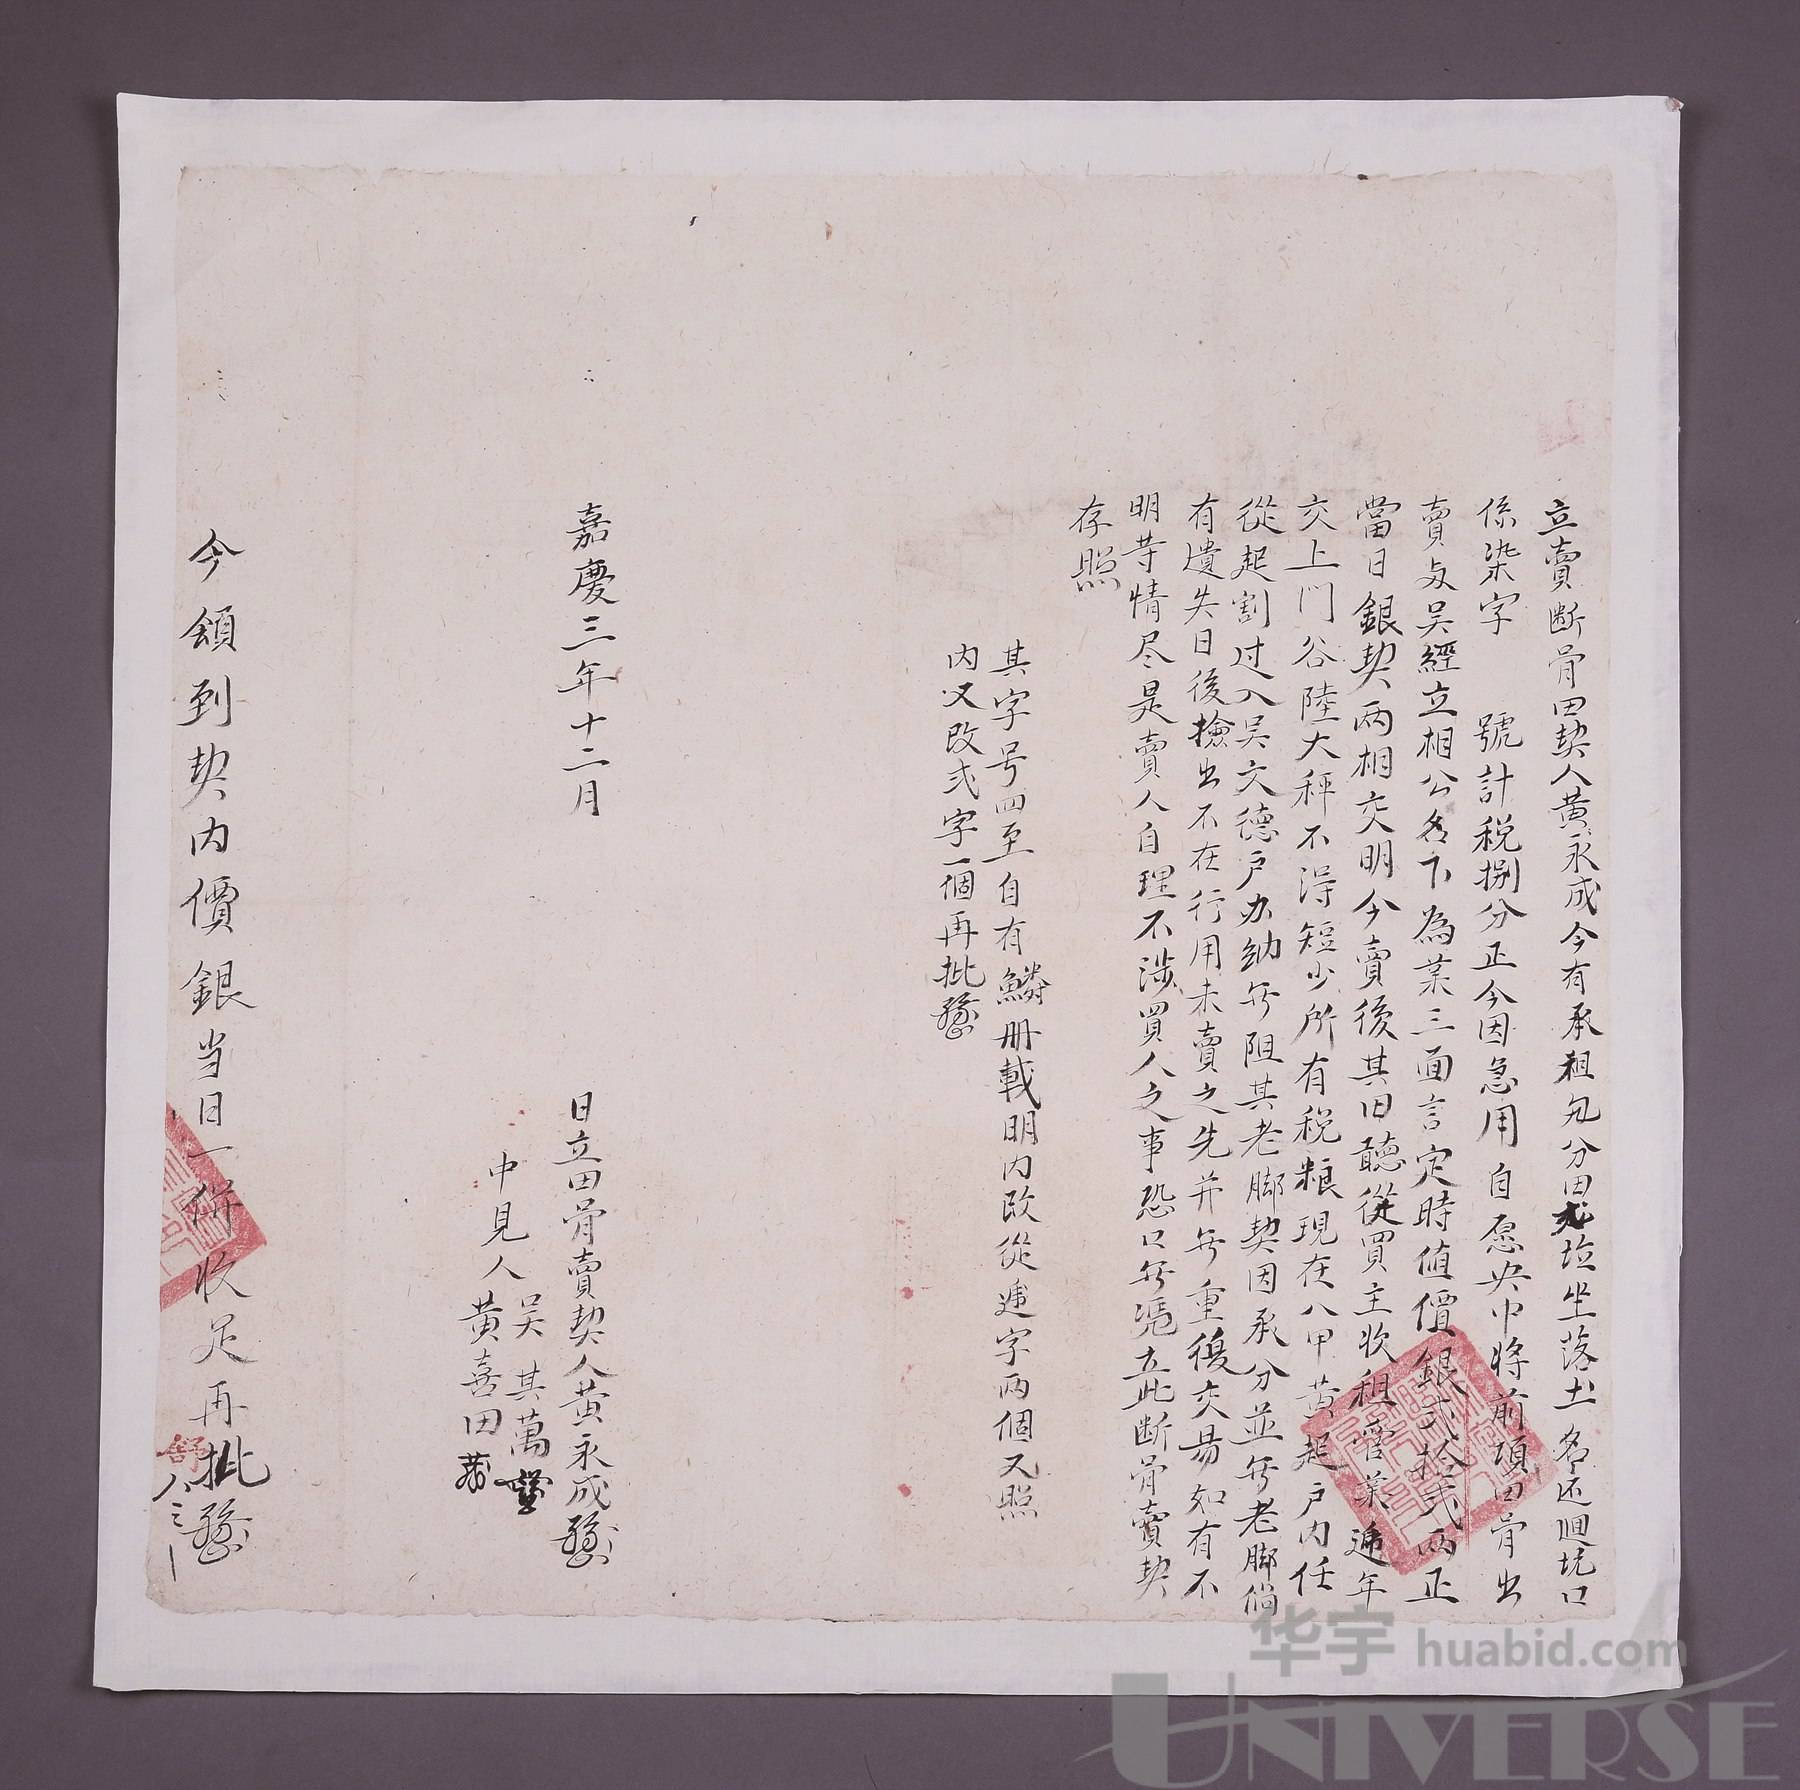 立賣断骨田契人黄永成今有承租九分田弍坵坐落土名还迴坑口
係染字　號計税捌分正今因急用自愿央中將前項田骨出
賣与吴經立相公名下為業三面言定時值價銀弍拾弍两正
當日銀契两相交明今賣後其田聽從買主收租管業递年
交上門谷陸大秤不淂短少所有税粮現在八甲黄起户内任
從起割过入吴文德户办納無阻其老脚契因承分並無老脚倘
有遺失日後撿出不在行用未賣之先並無重復交易如有不
明等情尽是賣人自理不涉買人之事恐口無凭立此断骨賣契
存照
其字号四至自有鱗册載明内改從递字两個又照
内又改弍字一個再批
嘉慶三年十二月　日立田骨賣契人黄永成
中見人吴其萬
黄喜田
今領到契内價銀当日一併收足再批
舒
华宇 huabid.com
UNIVERSE